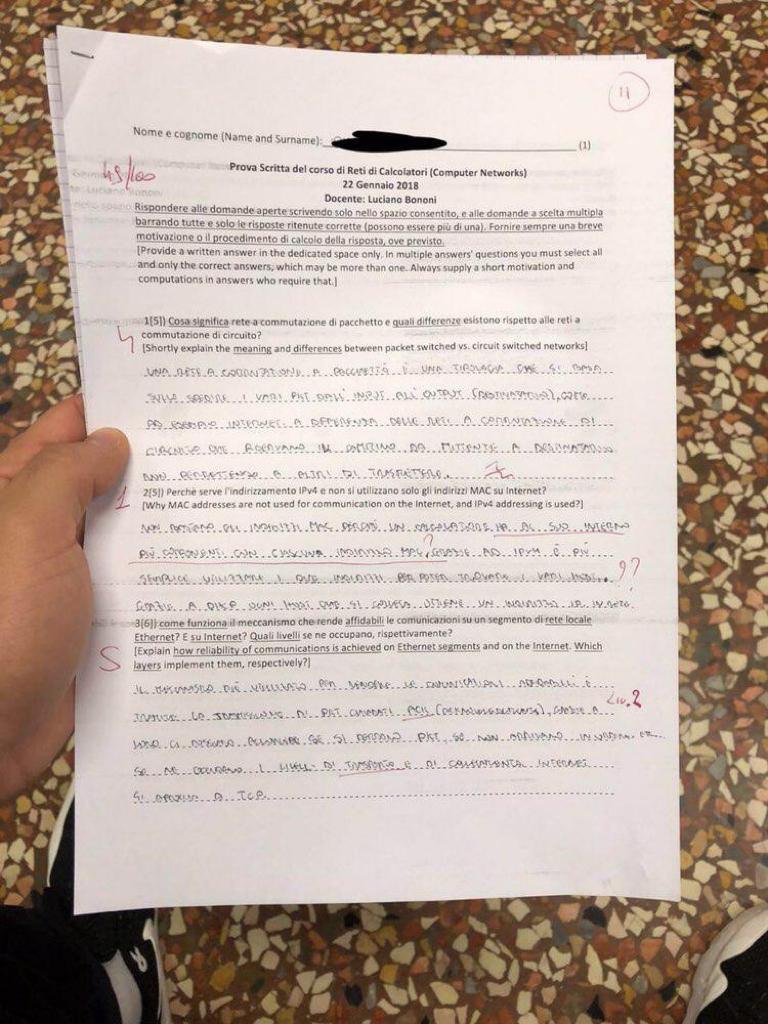 11
Nome e cognome (Name and Surname): (1)
Prova Scritta del corso di Reti di Calcolatori (Computer Networks)
22 Gennaio 2018
Docente: Luciano Bononi
Rispondere alle domande aperte scrivendo solo nello spazio consentito, e alle domande a scelta multipla
barrando tutte e solo le risposte ritenute corrette (possono essere più di una). Fornire sempre una breve
motivazione o il procedimento di calcolo della risposta, ove previsto.
[Provide a written answer in the dedicated space only. In multiple answers' questions you must select all
and only the correct answers, which may be more than one. Always supply a short motivation and
computations in answers who require that.]
1[5]) Cosa significa rete a commutazione di pacchetto e quali differenze esistono rispetto alle reti a
commutazione di circuito?
4
[Shortly explain the meaning and differences between packet switched vs. circuit switched networks]
UNA RETE A COMMUTAZIONE A PACCHETTO È UNA TIPOLOGIA CHE SI BASA
I VARI PKT DALL'INPUT ALL'OUTPUT (DESTINATARIO), COME
AD ESEMPIO INTERNET. A DIFFERENZA DELLE RETI A COMMUTAZIONE DI
CIRCUITO CHE RISERVANO IL DA MITTENTE A DESTINATARIO
NON PERMETTENDO A ALTRI DI TRASMETTERE.
1
2[5]) Perché serve l'indirizzamento IPv4 e non si utilizzano solo gli indirizzi MAC su Internet?
[Why MAC addresses are not used for communication on the Internet, and IPv4 addressing is used?]
NON GLI INDIRIZZI MAC PERCHÉ UN CALCOLATORE HA AL SUO INTERNO
PIÙ COMPONENTI CON CIASCUNA INDIRIZZO MAC, ? GRAZIE AD IPV4 È PIÙ
SEMPLICE I VARI ??
GRAZIE A OGNI CHE SI OTTIENE UN INDIRIZZO IP IN RETE.
3[6]) come funziona il meccanismo che rende affidabili le comunicazioni su un segmento di rete locale
Ethernet? E su Internet? Quali livelli se ne occupano, rispettivamente?
5
[Explain how reliability of communications is achieved on Ethernet segments and on the Internet. Which
layers implement them, respectively?]
IL PIÙ UTILIZZATO PER RENDERE LE COMUNICAZIONI AFFIDABILI È
TRAMITE LA TRASMISSIONE DI PKT CHIAMATI ACK (ACKNOWLEDGEMENTS), GRAZIE A
Liv. 2
LORO CI SE SI PKT, SE NON ARRIVANO IN ORDINE, ETC.
SE NE OCCUPANO I LIVELLI DI TRASPORTO E DI INTERNET
SI A TCP.